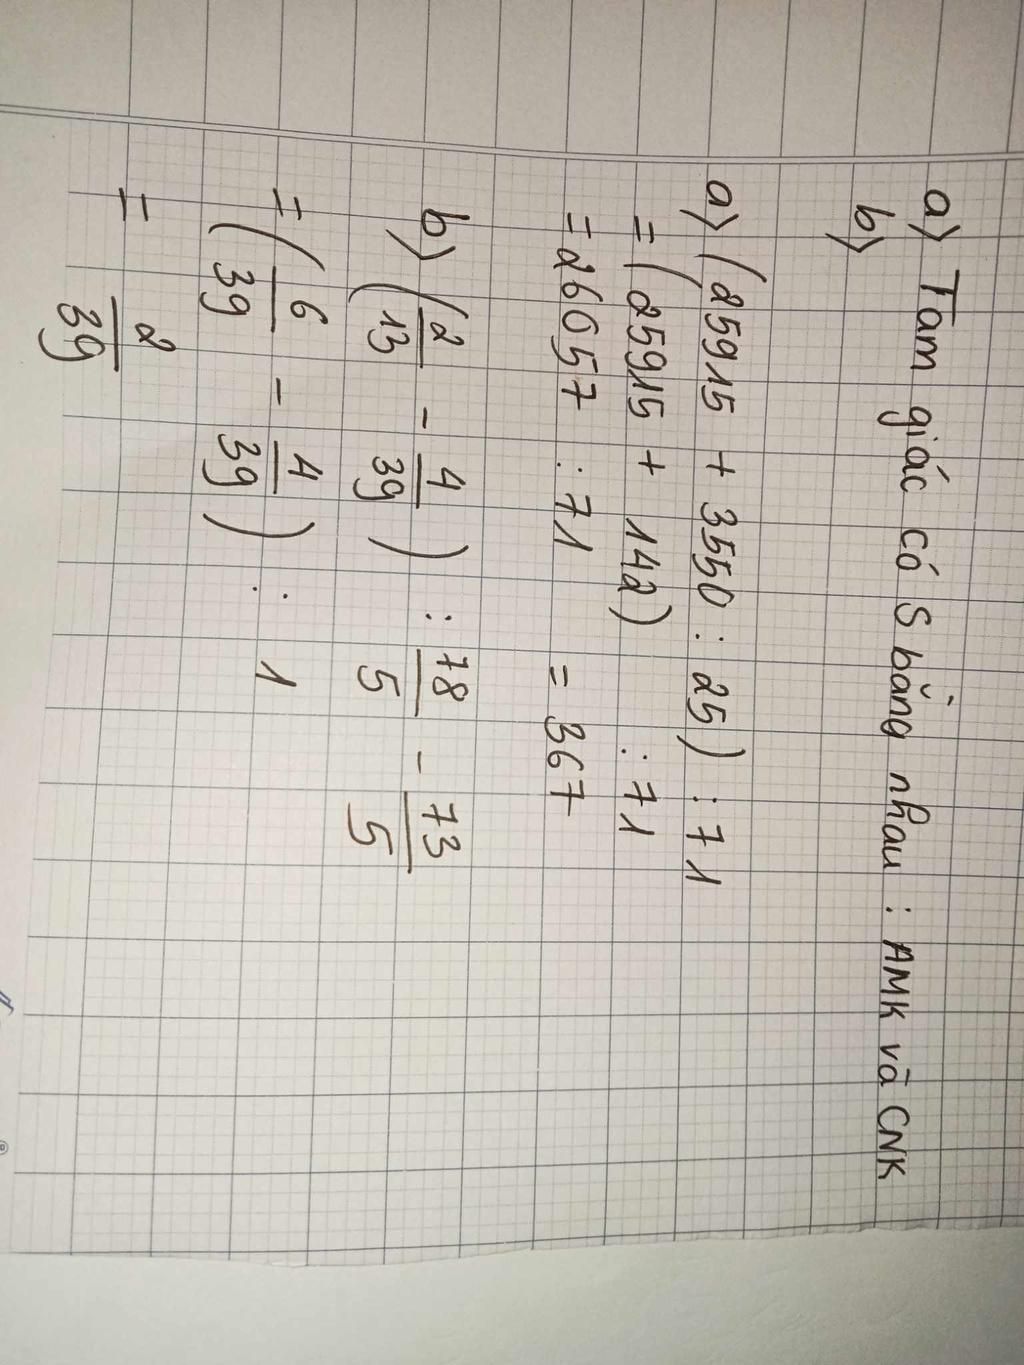 a) Tam giác có S bằng nhau : AMK và CNK
b)
a) (25915 + 3550 : 25) : 71
= (25915 + 142) : 71
= 26057 : 71 = 367
b) (2/13 - 4/39) : 78/5 - 73/5
= (6/39 - 4/39) : 1
= 2/39